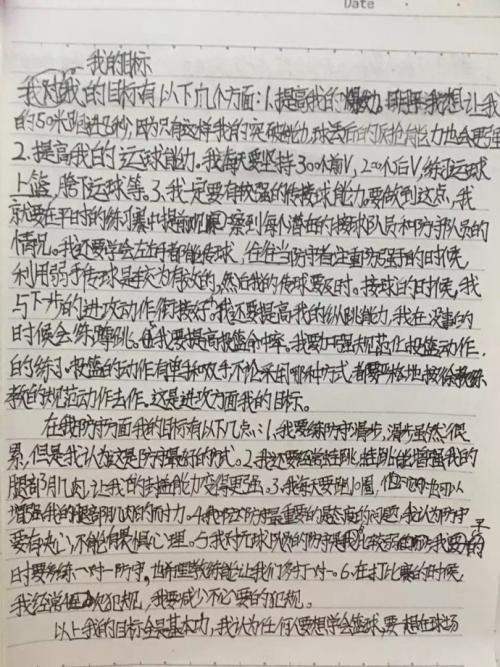 Date
一我的目标
我对我的目标有以下几个方面:1.提高我的爆发力.明年我想让我
的50米跑进6秒,因为只有这样我的突破能力,球丢后的反抢能力也会更强
2.提高我的运球能力.我每天要坚持300个前V,200个后V,练习运球
上篮,胯下运球等。3.我一定要有较强的传接球能力.要做到这点,我
就要在平时的练习赛中提前观察到每个潜在的接球队员和防守队员的
情况。我还要学会左右手都能传球,往往当防守者注重防强手的时候
利用弱手传球是较为有效的,然后我的传球要及时。接球的时候,我
与下一步的进攻动作衔接好。我还要提高我的纵跳能力,我在没事的
时候会练摸跳。我要提高投篮命中率。我要加强规范化投篮动作
的练习.投篮的动作有单手和双手不论采用哪种方式都要严格地按教练
教的规范动作去作。这是进攻方面我的目标。
在我防守方面我的目标有以下几点:1.我要练防守滑步,滑步虽然很
累,但是我认为这是防守最好的方式。2.我还要经常性跳,能增强我的
腿部肌肉,让我的封盖能力变得更强。3.我每天要跑10圈,也可以
增强我的腿部肌肉的耐力。4.我认为防守最重要的是态度的问题,我认为防守
要有决心,不能有惧怕心理。5.我对无球队员的防守是我比较弱的所以我要
时要多练一对一防守,也希望教练能让我们多打一对一。6.在打比赛的时候
我经常犯规,我要减少不必要的犯规。
以上我的目标全是基本功,我认为任何人要想学会篮球,要想在球场